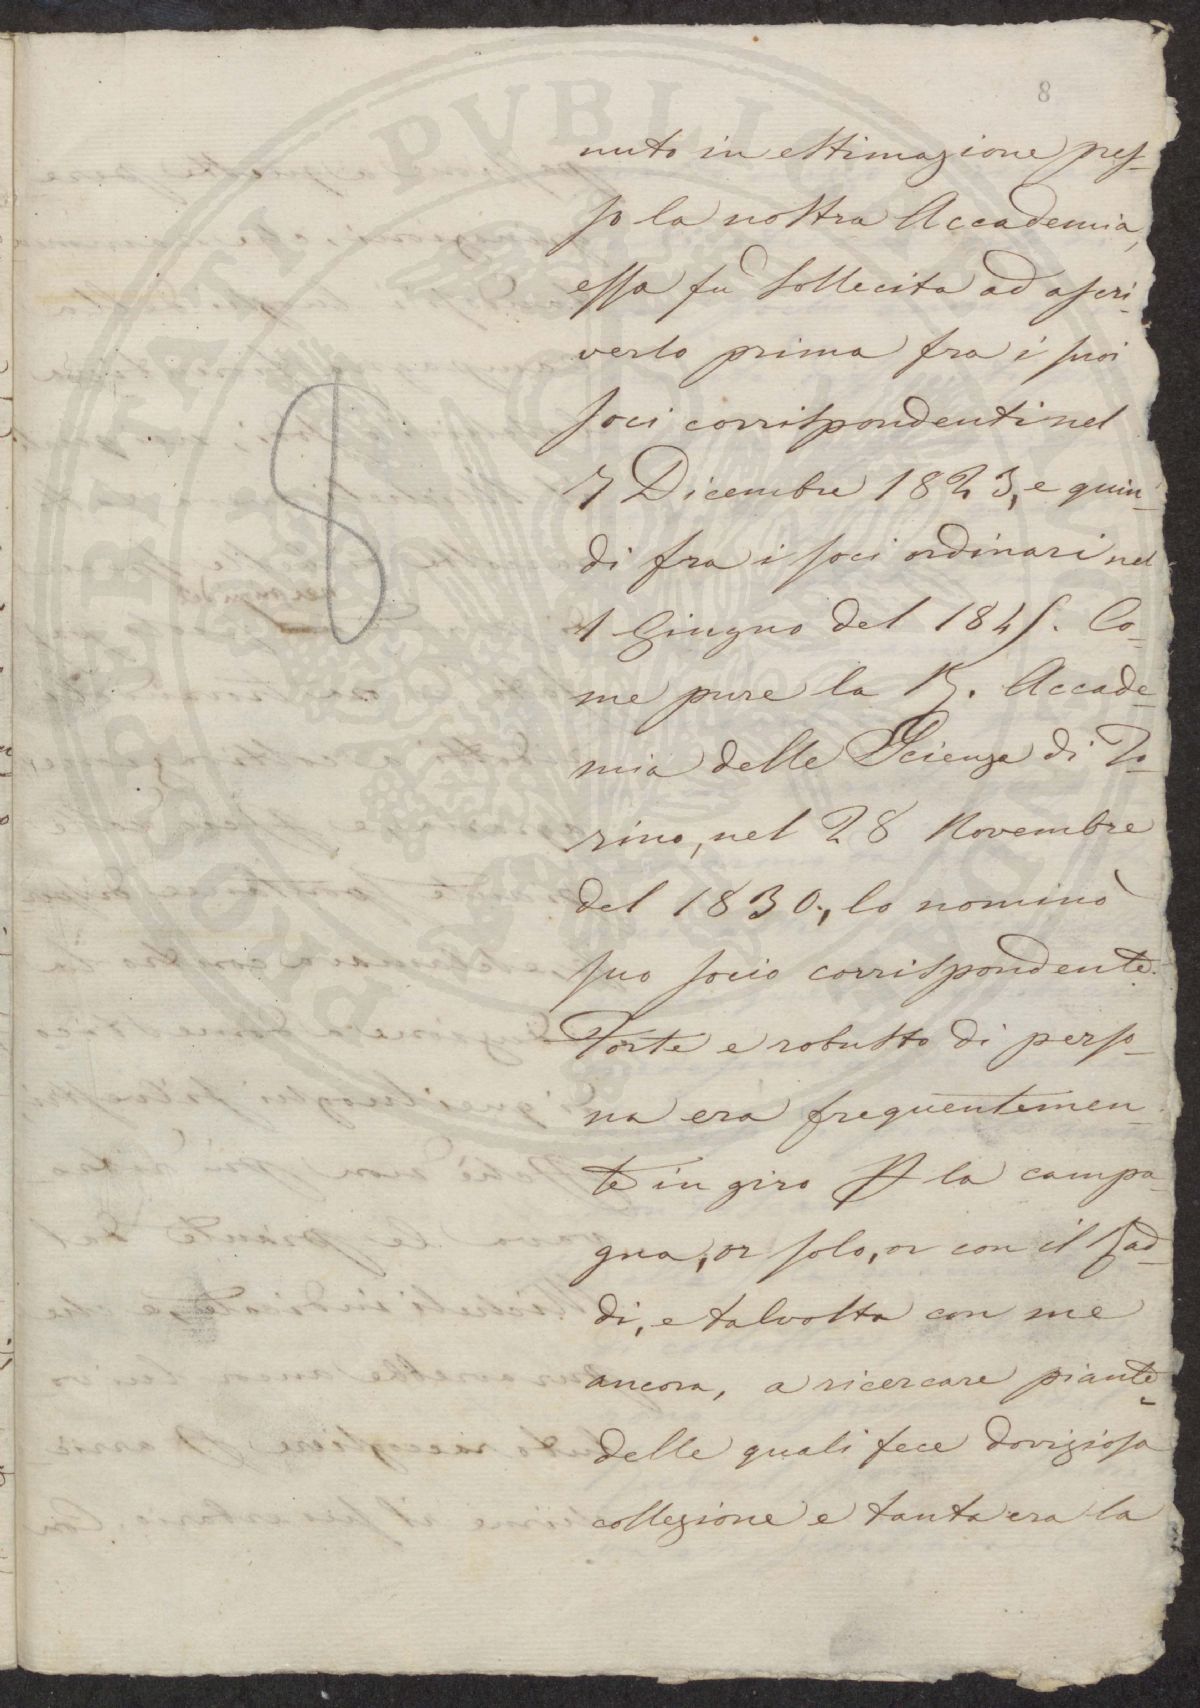 8
nuto in estimazione pres-
so la nostra Accademia,
essa fù sollecita ad ascri-
verlo prima fra i suoi
soci corrispondenti nel
7 Dicembre 1823, e quin-
di fra i soci ordinari nel
1 Giugno del 1845. Co-
me pure la R. Accade-
mia delle Scienze di To-
rino, nel 28 Novembre
del 1830., lo nominò
suo socio corrispondente.
Forte e robusto di perso-
na era frequentemen-
te in giro p la campa-
gna, or solo, or con il Rad-
di, e talvolta con me
ancora, a ricercare piante
delle quali fece doviziosa
collezione e tanta era la
8